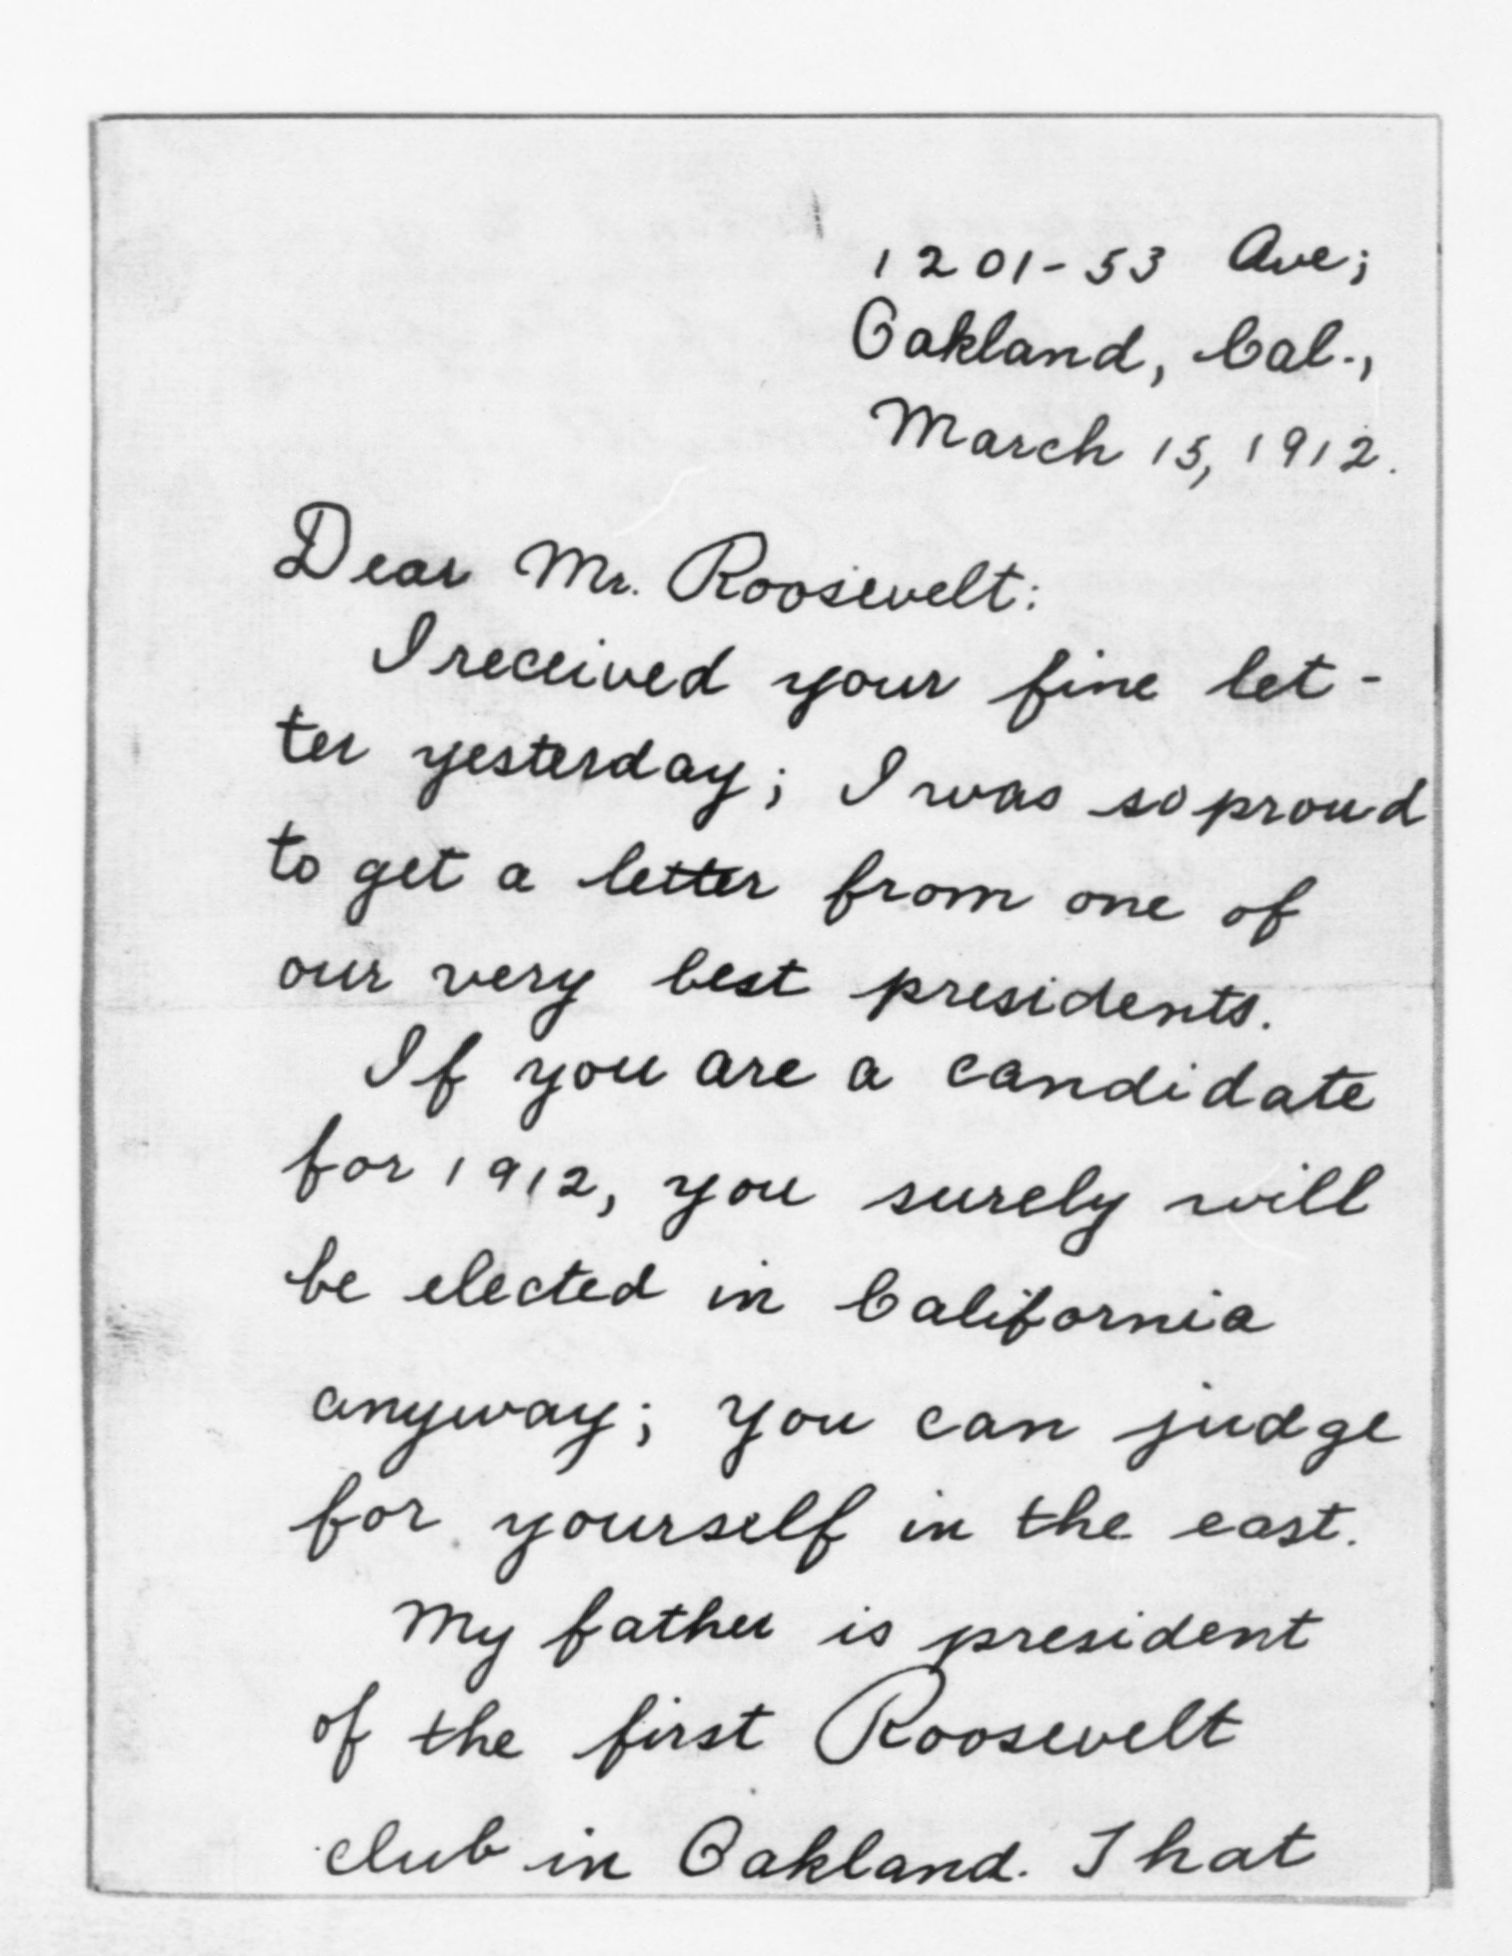 1201-53 Ave;
Oakland, Cal.,
March 15, 1912.
Dear Mr. Roosevelt:
I received your fine let-
ter yesterday; I was so proud
to get a letter from one of
our very best presidents.
If you are a candidate
for 1912, you surely will
be elected in California
anyway; you can judge
for yourself in the east.
My father is president
of the first Roosevelt
club in Oakland. That